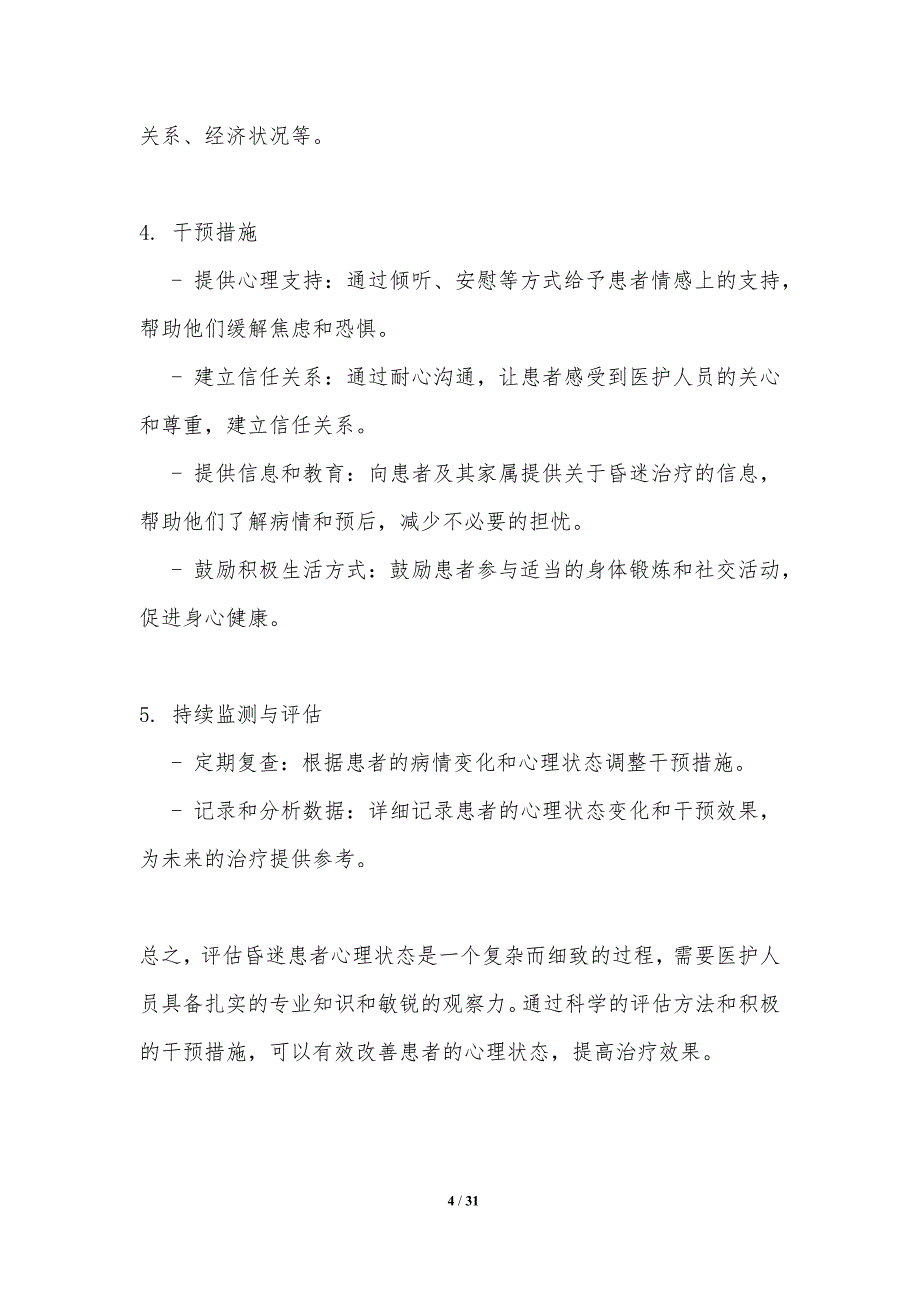 关系、经济状况等。
4. 干预措施
- 提供心理支持：通过倾听、安慰等方式给予患者情感上的支持，
帮助他们缓解焦虑和恐惧。
- 建立信任关系：通过耐心沟通，让患者感受到医护人员的关心
和尊重，建立信任关系。
- 提供信息和教育：向患者及其家属提供关于昏迷治疗的信息，
帮助他们了解病情和预后，减少不必要的担忧。
- 鼓励积极生活方式：鼓励患者参与适当的身体锻炼和社交活动，
促进身心健康。
5. 持续监测与评估
- 定期复查：根据患者的病情变化和心理状态调整干预措施。
- 记录和分析数据：详细记录患者的心理状态变化和干预效果，
为未来的治疗提供参考。
总之，评估昏迷患者心理状态是一个复杂而细致的过程，需要医护人
员具备扎实的专业知识和敏锐的观察力。通过科学的评估方法和积极
的干预措施，可以有效改善患者的心理状态，提高治疗效果。
4 / 31